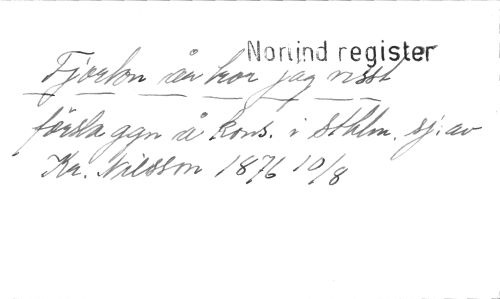 Norlind register
Fjorton år tror jag visst
första ggn å kons. i Sthlm. sj: av
Kr. Nilsson 1876 10/8